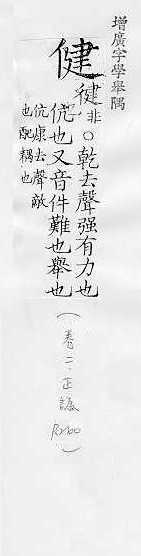 增廣字學舉隅
健
健非○乾去聲强有力也
伉也又音件難也舉也
伉康去聲敵
也配耦也
（卷二、正譌